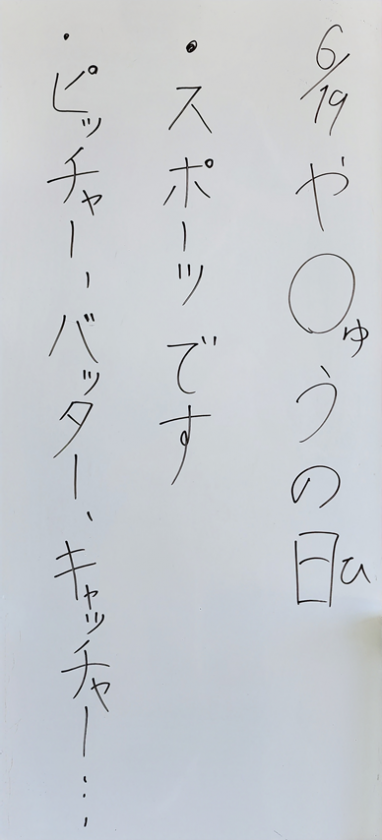 6/19 や○ゅうの日ひ
・スポーツです
・ピッチャー、バッター、キャッチャー…